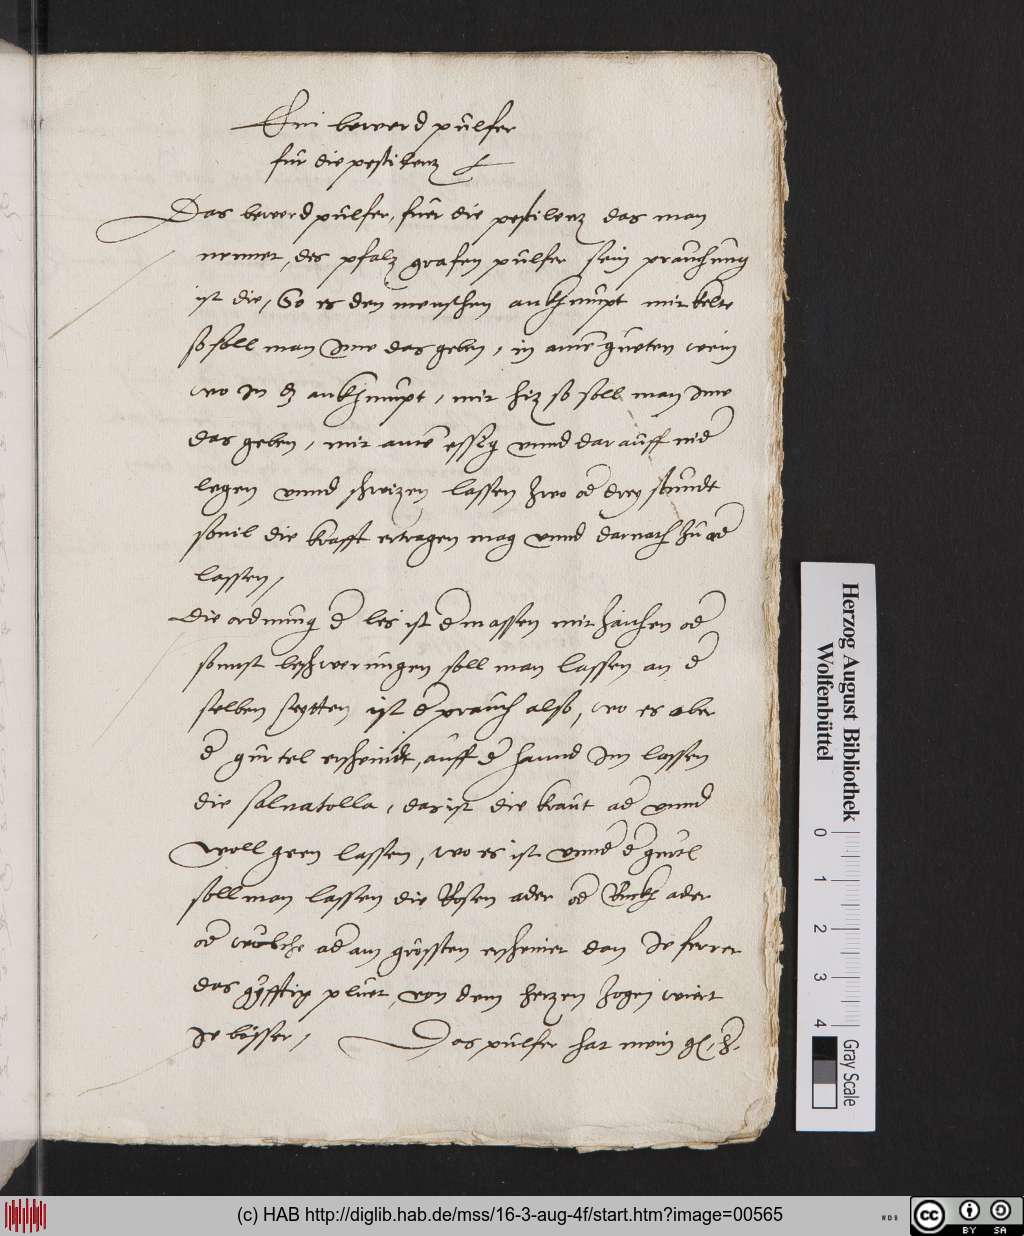 Ein bewerd pulfer
für die pestilentz
Das bewerd pulfer, fuer die pestilenz das man
nennet, des pfalz grafen pulfer sein prauchung
ist die, So es den menschen ankhumpt mit kelte
so soll man Ime das geben, in aine gueten wein
wo In es ankhumpt, mit hiz so soll man Ime
das geben, mit aine essig unnd darauff nid
legen unnd schwizen lassen zwo od drey stundt
sovil die krafft ertragen mag unnd darnach zu ad
lassen,
die ordnung d les ist d massen mit zaichen od
sonnst beschwerungen soll man lassen an d
selben seytten ist d prauch also, wo es ober
d gürtel erscheindt, auff d hannd Im lassen
die salvatella, das ist die kraut ad unnd
woll geen lassen, wo es ist unnd d gurtl
soll man lassen die Rosen ader od Ruckh ader
od wölche ad am grössten erscheinet dan Je ferrer
das gyfftig pluet, von dem herzen zogen wirt
Je bösser, Das pulfer hat mein g. h.
Herzog August Bibliothek
Wolfenbüttel
0 1 2 3 4
Gray Scale
(c) HAB http://diglib.hab.de/mss/16-3-aug-4f/start.htm?image=00565
WDB
cc BY SA